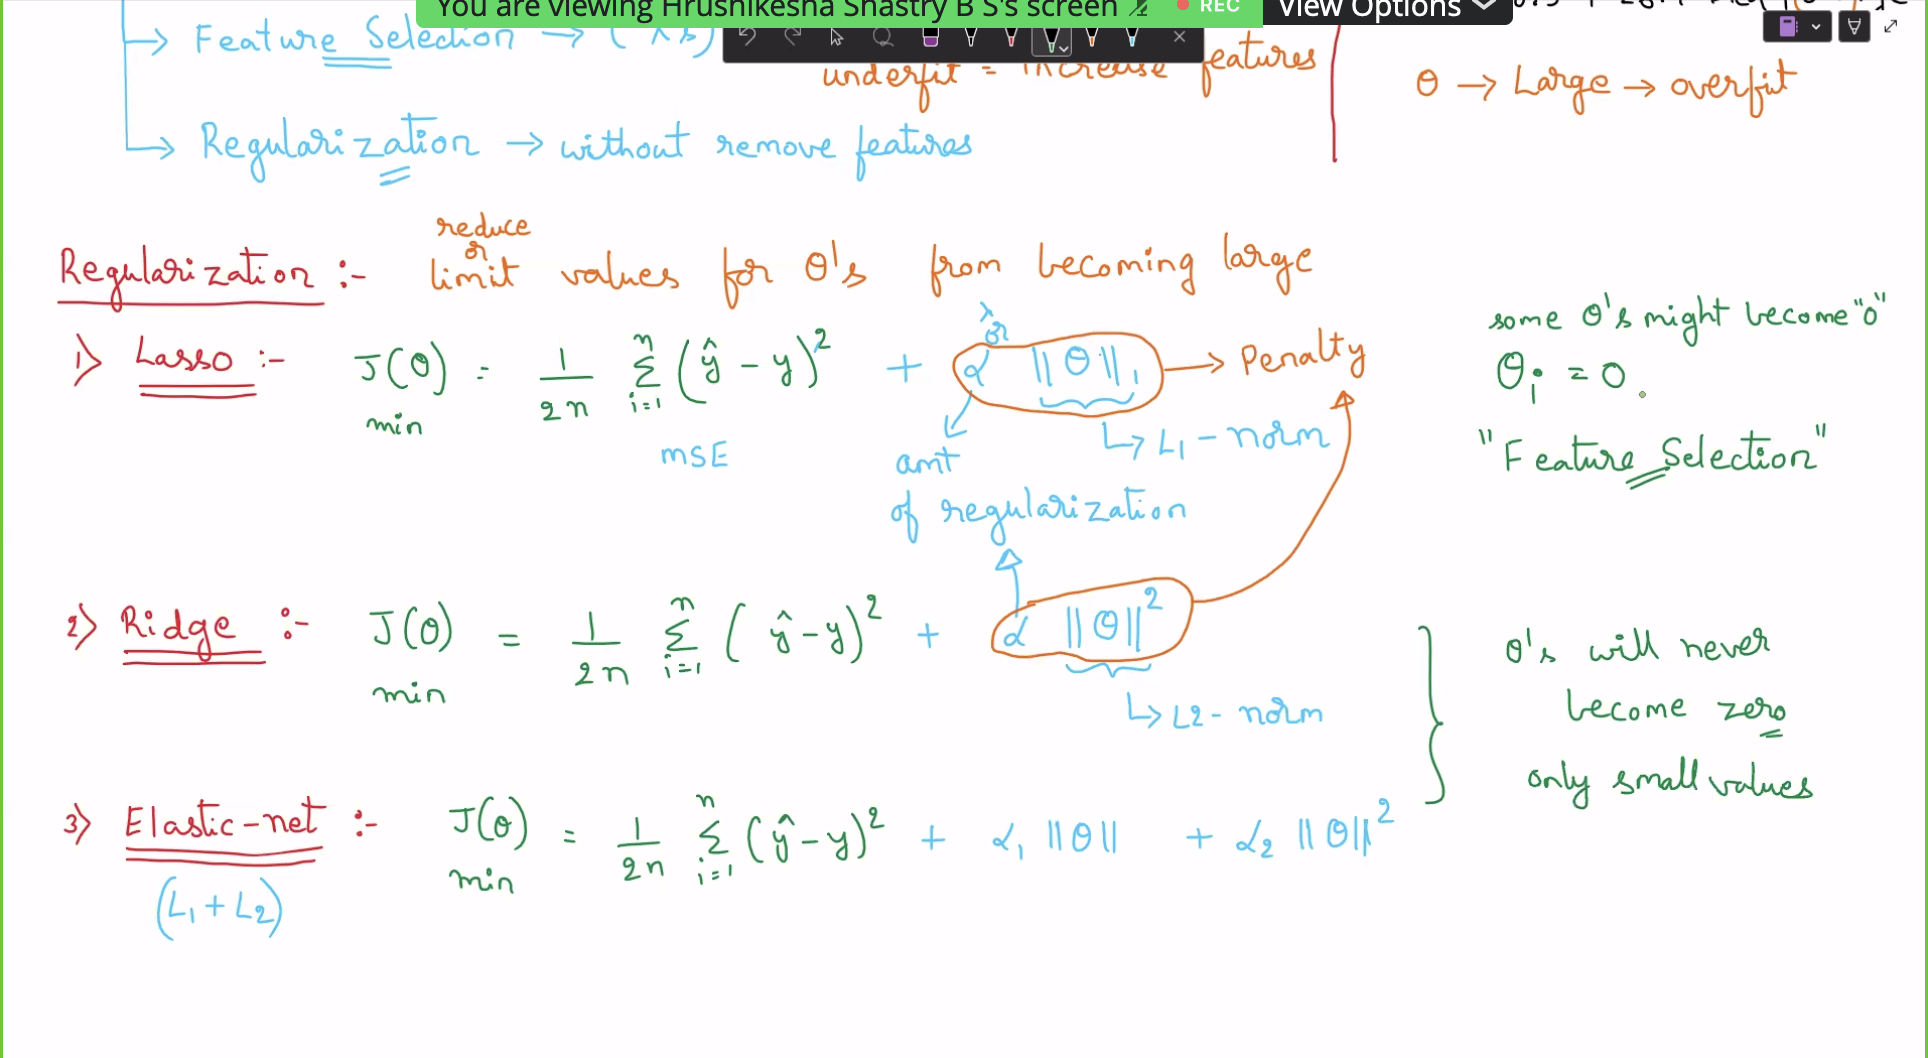 You are viewing Hrushikesha Shastry B S's screen
REC
View Options
→ Feature Selection →
underfit = increase features
θ → Large → overfit
→ Regularization → without remove features
reduce
or
Regularization :- limit values for θ's from becoming large
λ or
1) Lasso :- J(θ) = 1/2n Σ (ŷ - y)² + α ||θ||₁ → Penalty
n
i=1
min
MSE
amt
of regularization
↳ L1 - norm
some θ's might become "0"
θi = 0
"Feature Selection"
2) Ridge :- J(θ) = 1/2n Σ (ŷ - y)² + α ||θ||²
n
i=1
min
↳ L2 - norm
θ's will never
become zero
only small values
3) Elastic-net :- J(θ) = 1/2n Σ (ŷ - y)² + α₁ ||θ|| + α₂ ||θ||²
n
i=1
min
(L1 + L2)